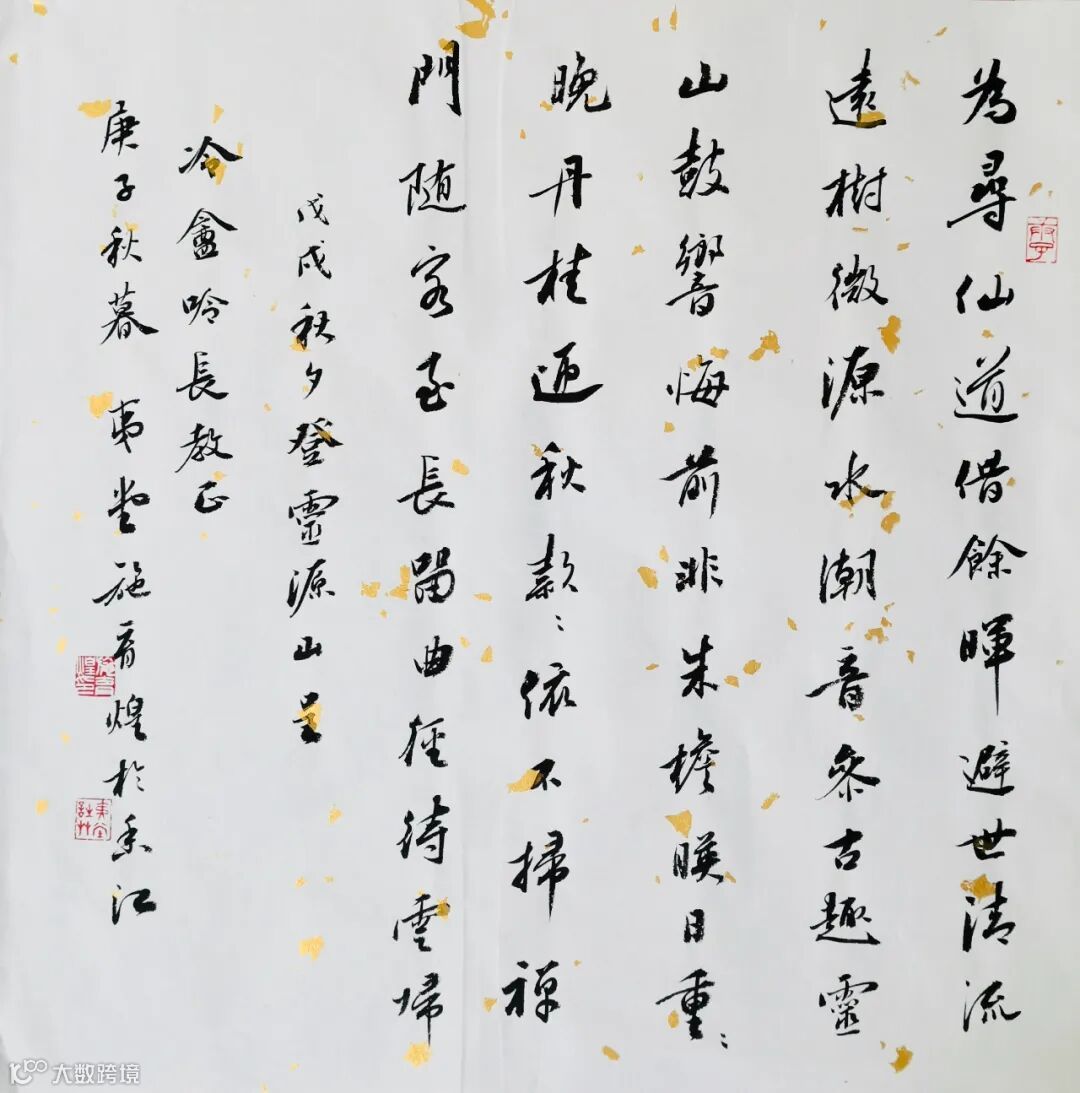 為尋仙道借餘暉避世清流
遠樹微源水潮音參古趣靈
山鼓響悔前非朱檐暎日重〻
晚丹桂迎秋款〻依不掃禪
門随客至長留曲徑待雲歸
戊戌秋夕登靈源山呈
冷盦吟長教正
庚子秋暮 夷堂施育煌於香江
大数跨境